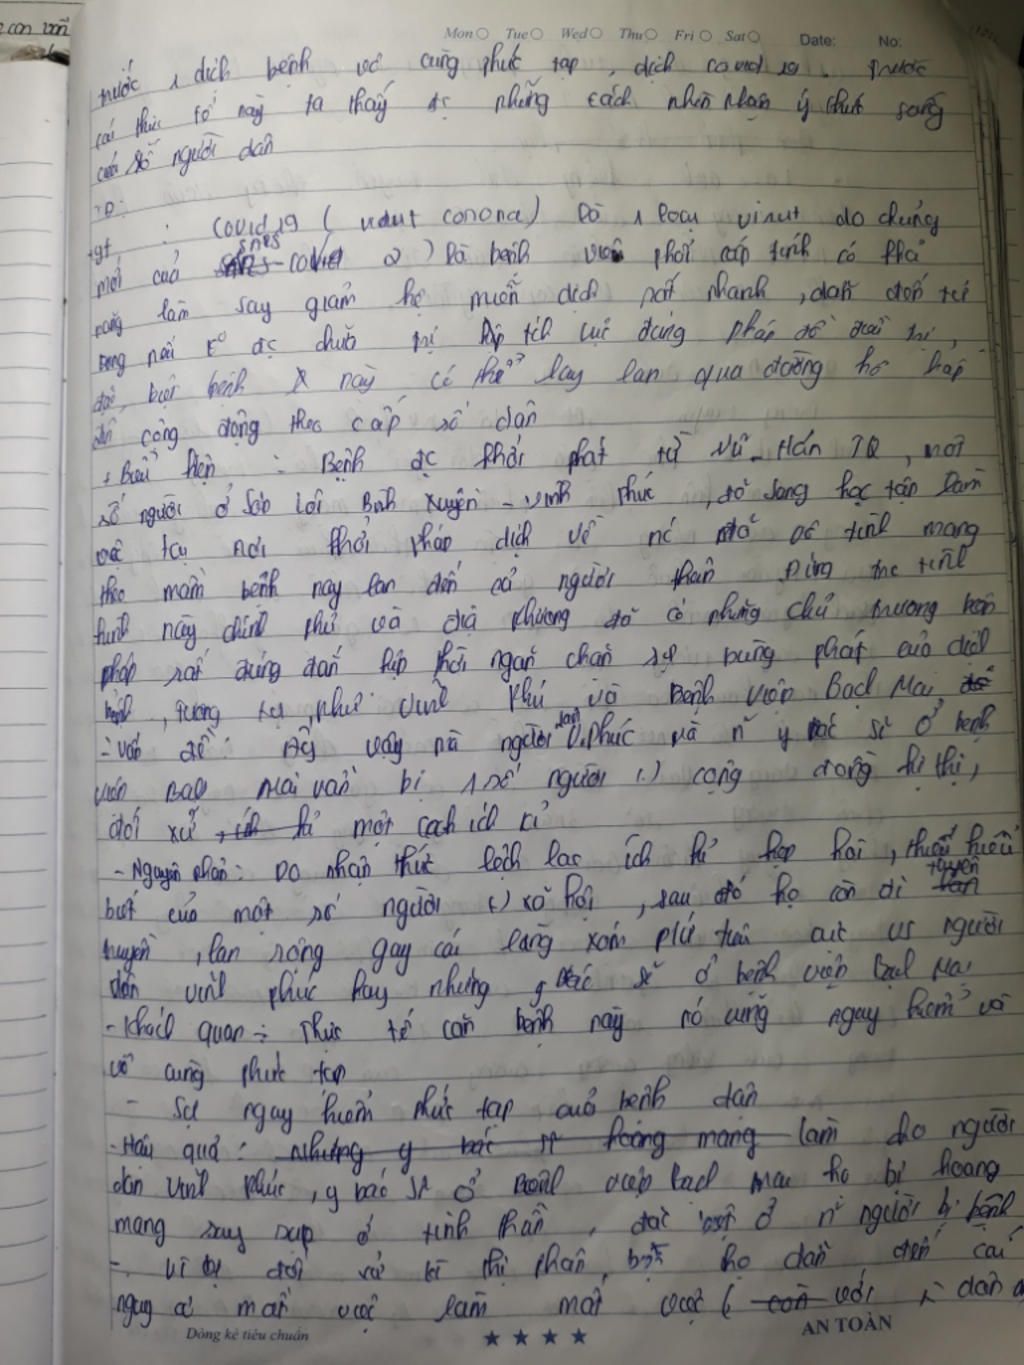 con vẫn
Mon Tue Wed Thu Fri Sat Date: No:
trước 1 dịch bệnh vô cùng phức tạp, dịch covid 19. Trước
cái thực tế này ta thấy đc những cách nhìn nhận ý thức sống
của số người dân
+gt : Covid 19 ( virut corona) Là 1 loại virut do chủng
mới của SARS covid 2 ) Là bệnh viêm phổi cấp tính có khả
năng làm suy giảm hệ miễn dịch rất nhanh, dẫn đến tử
vong nếu k0 đc chữa trị kịp tích cực đúng pháp đồ điều trị,
đặc biệt bệnh này có thể lây lan qua đường hô hấp
cộng đồng theo cấp số dân
+ Biểu hiện : Bệnh đc khởi phát từ Vũ Hán TQ, một
số người ở Sơn Lôi Bình Xuyên - Vĩnh Phúc, đã sang học tập làm
việc tại nơi khởi pháp dịch về nc đã vô tình mang
theo mầm bệnh này lan đến cả người thân Đứng trc tình
hình này chính phủ và địa phương đã có những chủ trương biện
pháp rất đúng đắn kịp thời ngăn chặn sự bùng phát của dịch
bệnh, tương tự như Vĩnh Phú và Bệnh viện Bạch Mai
- Vấn đề : Ấy vậy mà người dân V.Phúc và n~ y bác sĩ ở bệnh
viện Bạch Mai vẫn bị 1 số người (.) cộng đồng kì thị,
đối xử, ích kỉ một cách ích kỉ
- Nguyên nhân : Do nhận thức lệch lạc ích kỉ hẹp hòi, thiếu hiểu
biết của một số người (.) xã hội, sau đó họ còn đi tuyên
truyền, lan rộng gay cái làng xóm người
dân Vĩnh Phúc hay những y bác sĩ ở bệnh viện Bạch Mai
- Khách quan : Thực tế căn bệnh này nó cũng nguy hiểm và
vô cùng phức tạp
- Sự nguy hiểm phức tạp của bệnh dân
- Hậu quả : những y bác sĩ hoang mang làm cho người
dân Vĩnh Phúc, y bác sĩ ở Bệnh viện Bạch Mai họ bị hoang
mang suy sụp ở tinh thần, đặc biệt ở n~ người bị bệnh
- Vì bị đối xử kì thị phân biệt họ dẫn đến cái
nguy cơ mất việc làm mất việc ( còn với dân
Dòng kẻ tiêu chuẩn ★ ★ ★ ★ AN TOÀN